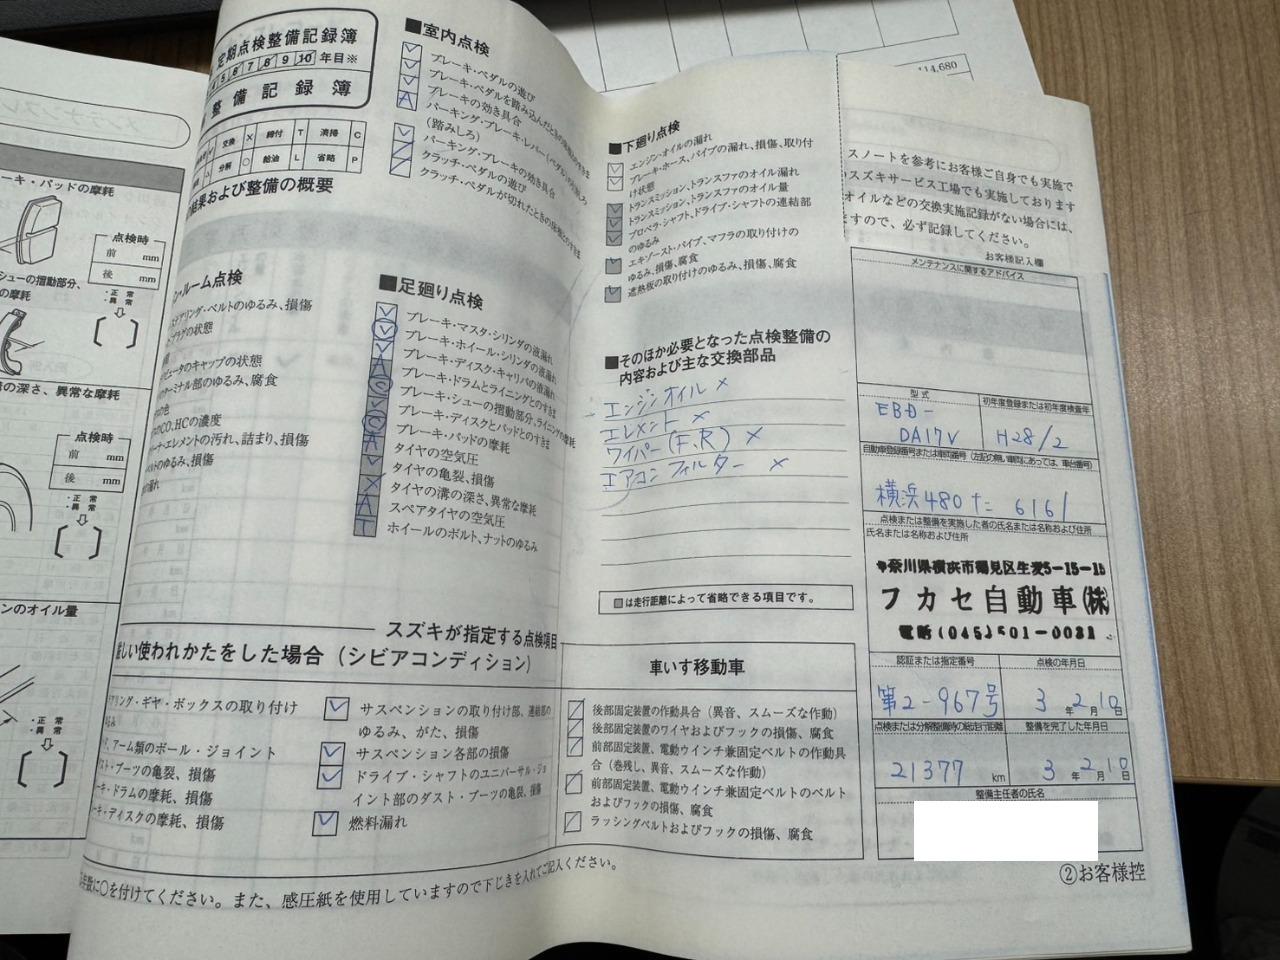 ーキ・パッドの摩耗
点検時
前 mm
後 mm
・正 常
・異 常
シューの摺動部分、
の摩耗
の深さ、異常な摩耗
点検時
前 mm
後 mm
・正 常
・異 常
ンのオイル量
・正 常
・異 常
定期点検整備記録簿
4 5 6 7 8 9 10 年目※
整備記録簿
交換 × 締付 T 清掃 C
分解 ○ 給油 L 省略 P
結果および整備の概要
■室内点検
ブレーキ・ペダルの遊び
ブレーキ・ペダルを踏み込んだときの床板とのすきま
ブレーキの効き具合
パーキング・ブレーキ・レバー(ペダル)の引きしろ
(踏みしろ)
パーキング・ブレーキの効き具合
クラッチ・ペダルの遊び
クラッチ・ペダルが切れたときの床板とのすきま
ン・ルーム点検
ステアリング・ベルトのゆるみ、損傷
プラグの状態
ビュータのキャップの状態
ターミナル部のゆるみ、腐食
の色
CO、HCの濃度
ーナ・エレメントの汚れ、詰まり、損傷
ベルトのゆるみ、損傷
漏れ
■足廻り点検
ブレーキ・マスタ・シリンダの液漏れ
ブレーキ・ホイール・シリンダの液漏れ
ブレーキ・ディスク・キャリパの液漏れ
ブレーキ・ドラムとライニングとのすきま
ブレーキ・シューの摺動部分、ライニングの摩耗
ブレーキ・ディスクとパッドとのすきま
ブレーキ・パッドの摩耗
タイヤの空気圧
タイヤの亀裂、損傷
タイヤの溝の深さ、異常な摩耗
スペアタイヤの空気圧
ホイールのボルト、ナットのゆるみ
■下廻り点検
エンジン・オイルの漏れ
ブレーキ・ホース、パイプの漏れ、損傷、取り付
け状態
トランスミッション、トランスファのオイル漏れ
トランスミッション、トランスファのオイル量
プロペラ・シャフト、ドライブ・シャフトの連結部
のゆるみ
エキゾースト・パイプ、マフラの取り付けの
ゆるみ、損傷、腐食
遮熱板の取り付けのゆるみ、損傷、腐食
■そのほか必要となった点検整備の
内容および主な交換部品
エンジンオイル ×
エレメント ×
ワイパー(F、R) ×
エアコンフィルター ×
■は走行距離によって省略できる項目です。
スズキが指定する点検項目
厳しい使われかたをした場合(シビアコンディション)
アリング・ギヤ・ボックスの取り付け
るみ
アーム類のボール・ジョイント
スト・ブーツの亀裂、損傷
キ・ドラムの摩耗、損傷
ーキ・ディスクの摩耗、損傷
サスペンションの取り付け部、連結部の
ゆるみ、がた、損傷
サスペンション各部の損傷
ドライブ・シャフトのユニバーサル・ジョ
イント部のダスト・ブーツの亀裂、損傷
燃料漏れ
車いす移動車
後部固定装置の作動具合(異音、スムーズな作動)
後部固定装置のワイヤおよびフックの損傷、腐食
前部固定装置、電動ウインチ兼固定ベルトの作動具
合(巻残し、異音、スムーズな作動)
前部固定装置、電動ウインチ兼固定ベルトのベルト
およびフックの損傷、腐食
ラッシングベルトおよびフックの損傷、腐食
年数に○を付けてください。また、感圧紙を使用していますので下じきを入れてご記入ください。
114,680
スノートを参考にお客様ご自身でも実施で
スズキサービス工場でも実施しております
オイルなどの交換実施記録がない場合には、
ますので、必ず記録してください。
お客様記入欄
メンテナンスに関するアドバイス
型 式
初年度登録または初年度検査年
EBD-
DA17V
H28/2
自動車登録番号または車両番号(左記の無い車両にあっては、車台番号)
横浜480た 6161
点検または整備を実施した者の氏名または名称および住所
氏名または名称および住所
神奈川県横浜市鶴見区生麦5-15-15
フカセ自動車(株)
電話(045)501-0031
認証または指定番号
点検の年月日
第2-967号
3年2月10日
点検または分解整備時の総走行距離
整備を完了した年月日
21377 km
3年2月10日
整備主任者の氏名
②お客様控